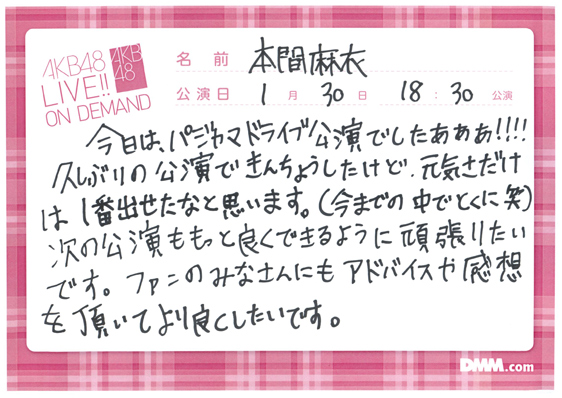 AKB48
LIVE!!
ON DEMAND
AKB
48
名前 本間麻衣
公演日 1月30日 18:30公演
今日は、パジャマドライブ公演でしたあああ!!!!
久しぶりの公演できんちょうしたけど、元気さだけ
は1番出せたなと思います。(今までの中でとくに笑)
次の公演ももっと良くできるように頑張りたい
です。ファンのみなさんにもアドバイスや感想
を頂いてより良くしたいです。
DMM.com